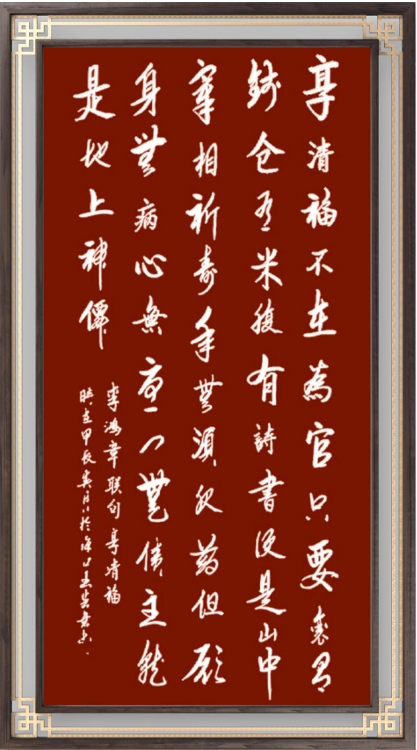 享清福不在為官只要囊有
錢仓有米腹有詩書便是山中
宰相祈壽年無須服药但愿
身無病心無憂门無債主就
是地上神僊
李鴻章联句享清福
時在甲辰